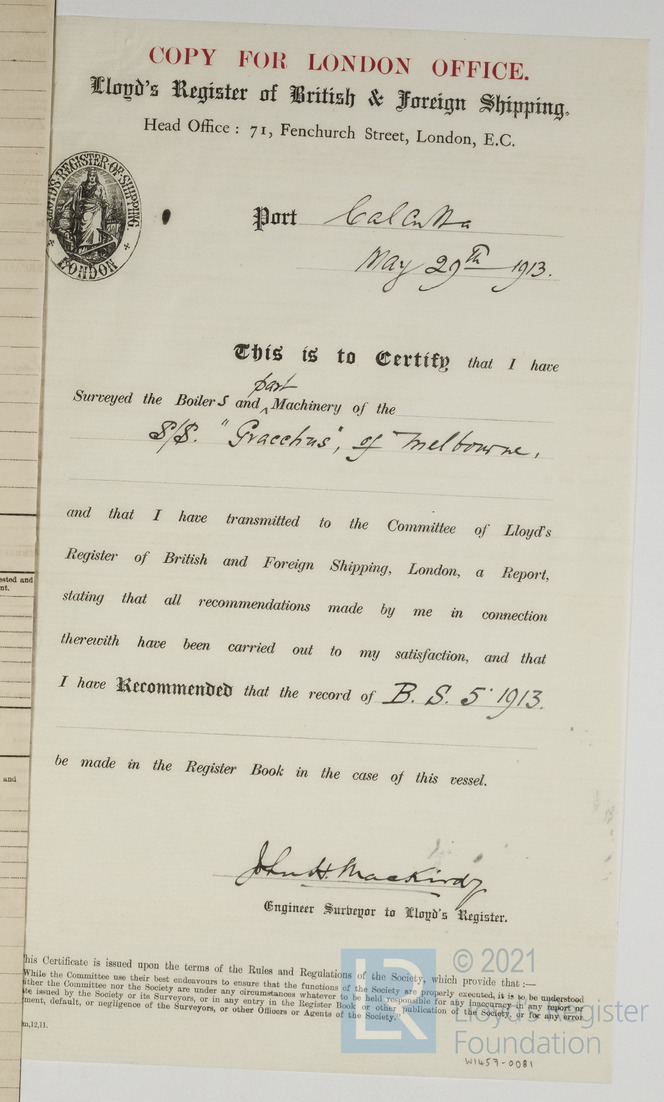 COPY FOR LONDON OFFICE.
Lloyd's Register of British & Foreign Shipping.
Head Office : 71, Fenchurch Street, London, E.C.
LLOYD'S REGISTER OF SHIPPING.
LONDON
Port Calcutta
May 29th 1913.
This is to Certify that I have
part
Surveyed the Boilers and ‸ Machinery of the
S/S. "Gracchus", of Melbourne,
and that I have transmitted to the Committee of Lloyd's
Register of British and Foreign Shipping, London, a Report,
stating that all recommendations made by me in connection
therewith have been carried out to my satisfaction, and that
I have Recommended that the record of B. S. 5·1913.
be made in the Register Book in the case of this vessel.
John H. MacKirdy
Engineer Surveyor to Lloyd's Register.
his Certificate is issued upon the terms of the Rules and Regulations of the Society, which provide that :—
"While the Committee use their best endeavours to ensure that the functions of the Society are properly executed, it is to be understood
ither the Committee nor the Society are under any circumstances whatever to be held responsible for any inaccuracy in any report or
te issued by the Society or its Surveyors, or in any entry in the Register Book or other publication of the Society, or for any error
ment, default, or negligence of the Surveyors, or other Officers or Agents of the Society."
m,12,11.
ested and
nt.
and
LR
© 2021
Lloyd's Register
Foundation
W1457-0081